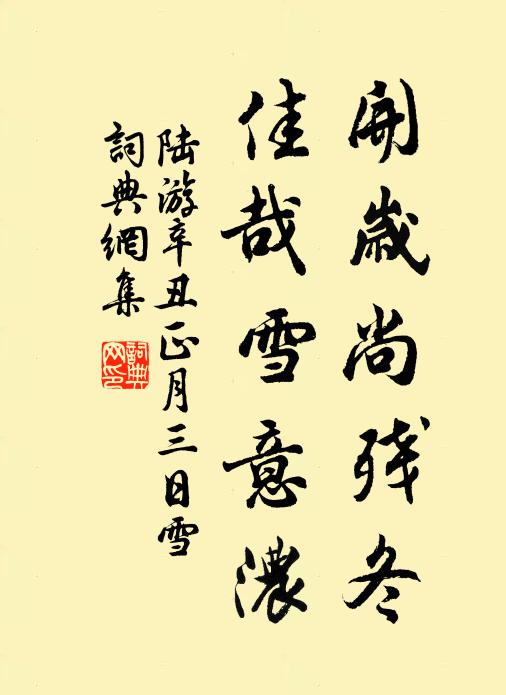 開歲尚残冬
佳哉雪意濃
陸游辛丑正月三日雪
詞典網集
詞典网印